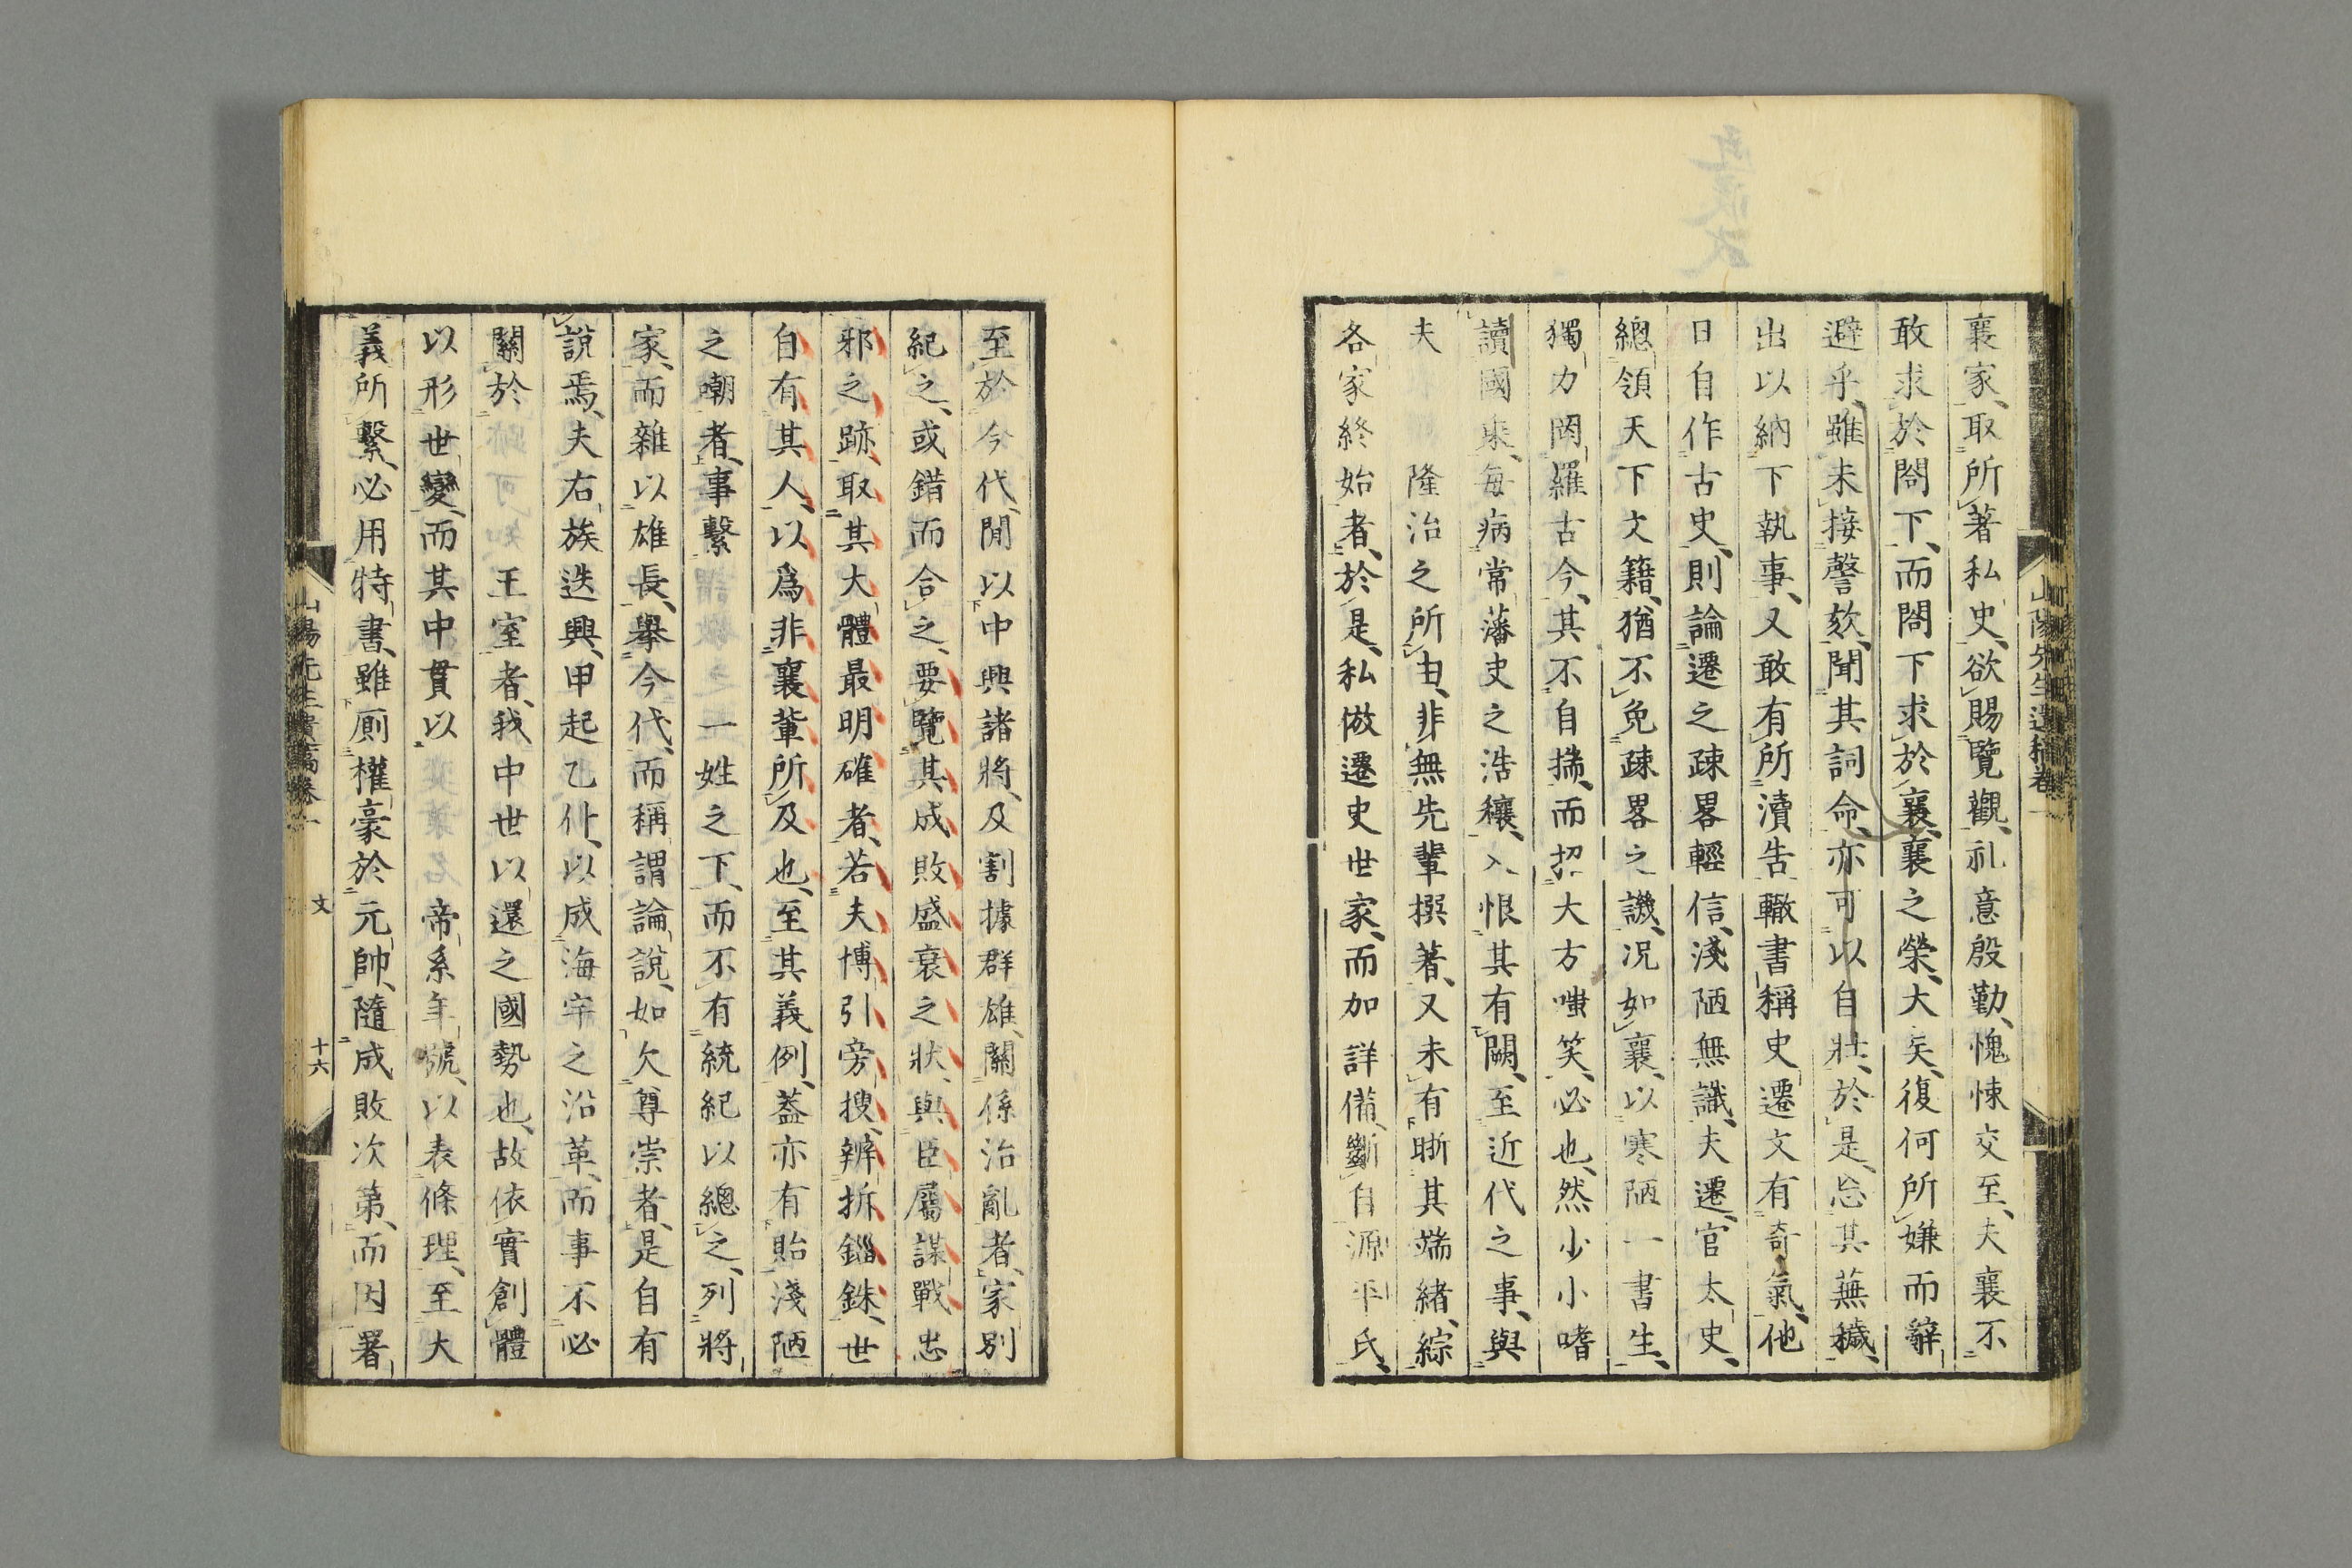 襄家、取所著私史、欲賜覽觀、礼意殷勤、愧悚交至、夫襄不
敢求於閤下、而閤下求於襄、襄之榮、大矣、復何所嫌而辭
避乎、雖未接謦欬、聞其詞命、亦可以自壯、於是、忘其蕪穢、
出以納下執事、又敢有所瀆告轍書稱史遷文有奇氣、他
日自作古史、則論遷之疎畧輕信、淺陋無識、夫遷、官太史、
總領天下文籍、猶不免疎畧之譏、況如襄、以寒陋一書生、
獨力罔羅古今、其不自揣、而招大方嗤笑、必也、然少小嗜
讀國乘、每病常藩史之浩穰、入恨其有闕、至近代之事、與
夫 隆治之所由、非無先輩撰著、又未有晰其端緒、綜
各家終始者、於是、私倣遷史世家、而加詳備、斷自源平氏、
山陽先生遺稿卷一
至於今代、閒以中興諸將、及割據群雄、關係治亂者、家別
紀之、或錯而合之、要覽其成敗盛衰之狀、與臣屬謀戰忠
邪之跡、取其大體最明確者、若夫博引旁搜、辨拆錙銖、世
自有其人、以爲非襄輩所及也、至其義例、蓋亦有貽淺陋
之嘲者、事繫 一姓之下、而不有統紀以總之、列將
家、而雜以雄長、舉今代、而稱謂論說、如欠尊崇者、是自有
說焉、夫右族迭興、甲起乙仆、以成海宇之沿革、而事不必
關於 王室者、我中世以還之國勢也、故依實創體
以形世變、而其中貫以 帝系年號、以表條理、至大
義所繫、必用特書、雖厠權豪於元帥、隨成敗次第、而因署
山陽先生遺稿卷一 文 十六